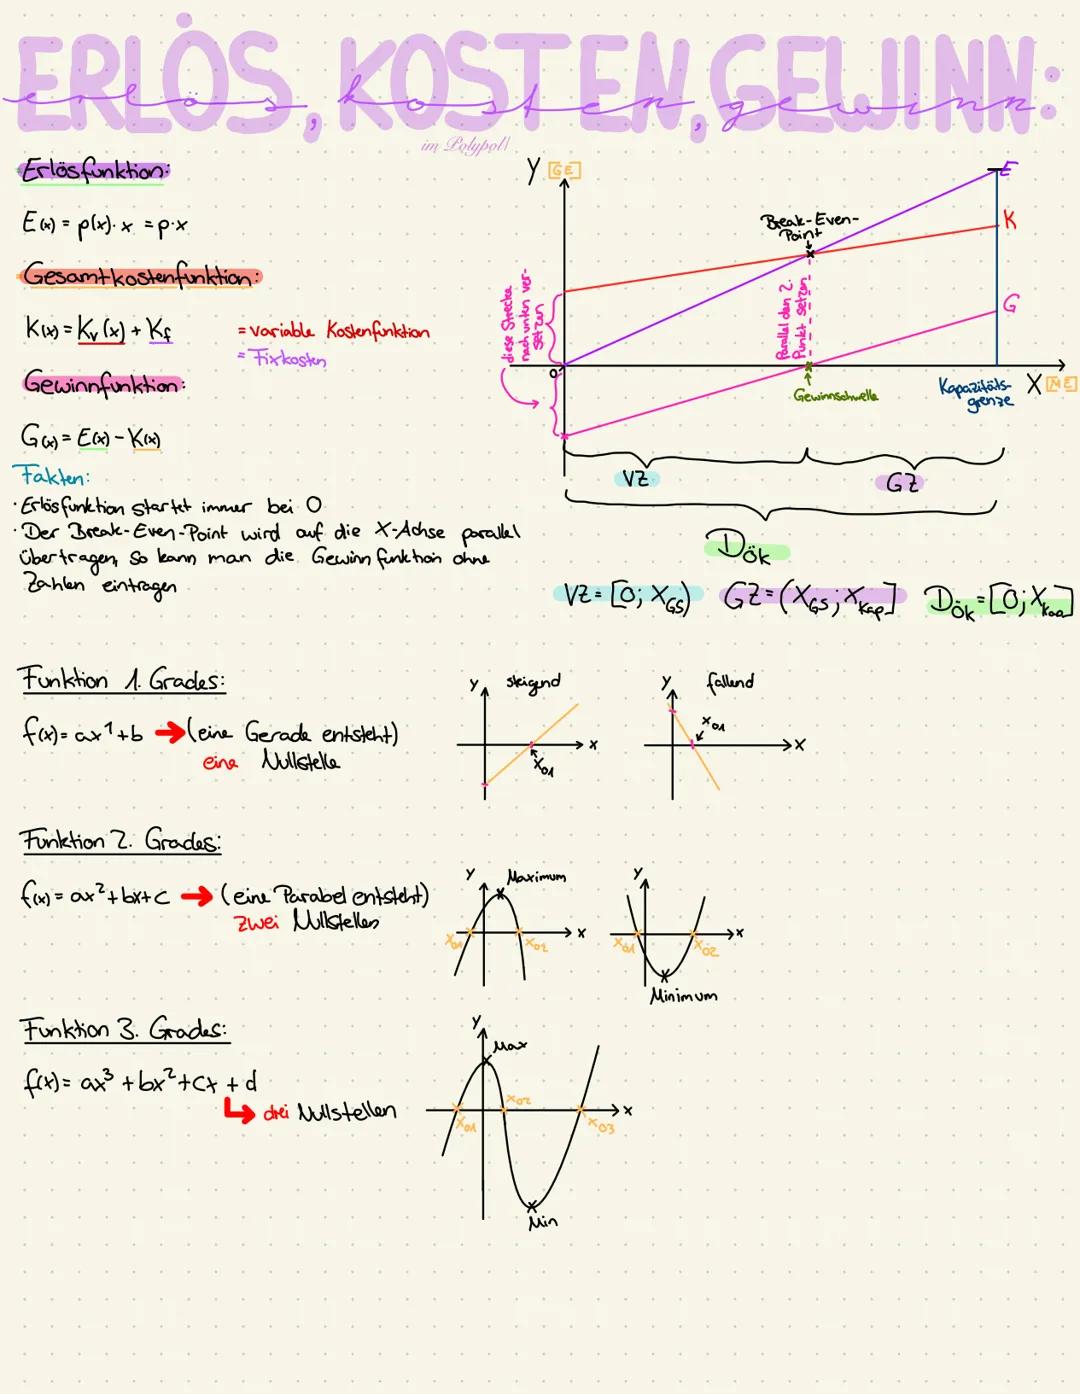 ERLÖS, KOSTEN, GEWINN:
erlös, kosten, gewinn
im Polypol!
Erlösfunktion:
E(x) = p(x) · x = p · x
Gesamtkostenfunktion:
K(x) = Kv(x) + Kf
= variable Kostenfunktion
= Fixkosten
Gewinnfunktion:
G(x) = E(x) - K(x)
Fakten:
· Erlösfunktion startet immer bei 0
· Der Break-Even-Point wird auf die X-Achse parallel
übertragen, so kann man die Gewinnfunktion ohne
Zahlen eintragen
Y [GE]
E
K
G
Break-Even-
Point
diese Strecke
nach unten ver-
setzen
Parallel den 2.
Punkt setzen
0
Gewinnschwelle
Kapazitäts-
grenze
X [ME]
VZ
GZ
Dök
VZ = [0; XGS)
GZ = (XGS; XKap]
Dök = [0; XKap]
Funktion 1. Grades:
f(x) = ax¹ + b → (eine Gerade entsteht)
eine Nullstelle
y steigend
x
x01
y fallend
x01
x
Funktion 2. Grades:
f(x) = ax² + bx + c → (eine Parabel entsteht)
zwei Nullstellen
y Maximum
x01 x02 x
y
x01 x02 x
Minimum
Funktion 3. Grades:
f(x) = ax³ + bx² + cx + d
↳ drei Nullstellen
y
Max
x01 x02 x03 x
Min